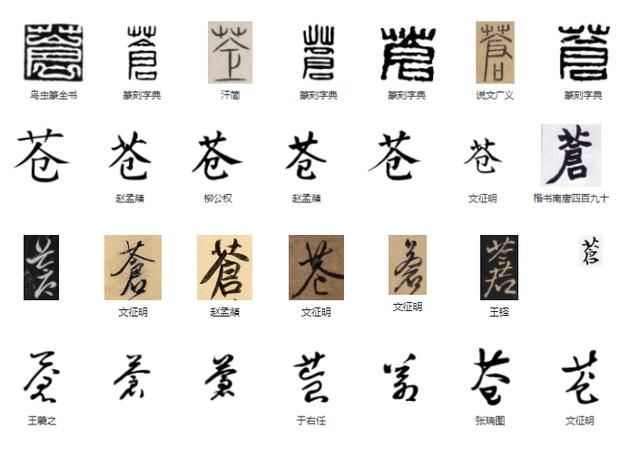 蒼 蒼 蒼 蒼 蒼 蒼 蒼
鸟虫篆全书 篆刻字典 汗简 篆刻字典 篆刻字典 说文广义 篆刻字典
苍 苍 苍 苍 苍 苍 蒼
赵孟頫 柳公权 赵孟頫 文征明 楷书南唐四百九十
蒼 蒼 蒼 苍 蒼 蒼 蒼
文征明 赵孟頫 文征明 文征明 王铎
蒼 蒼 蒼 蒼 蒼 苍 苍
王羲之 于右任 张瑞图 文征明